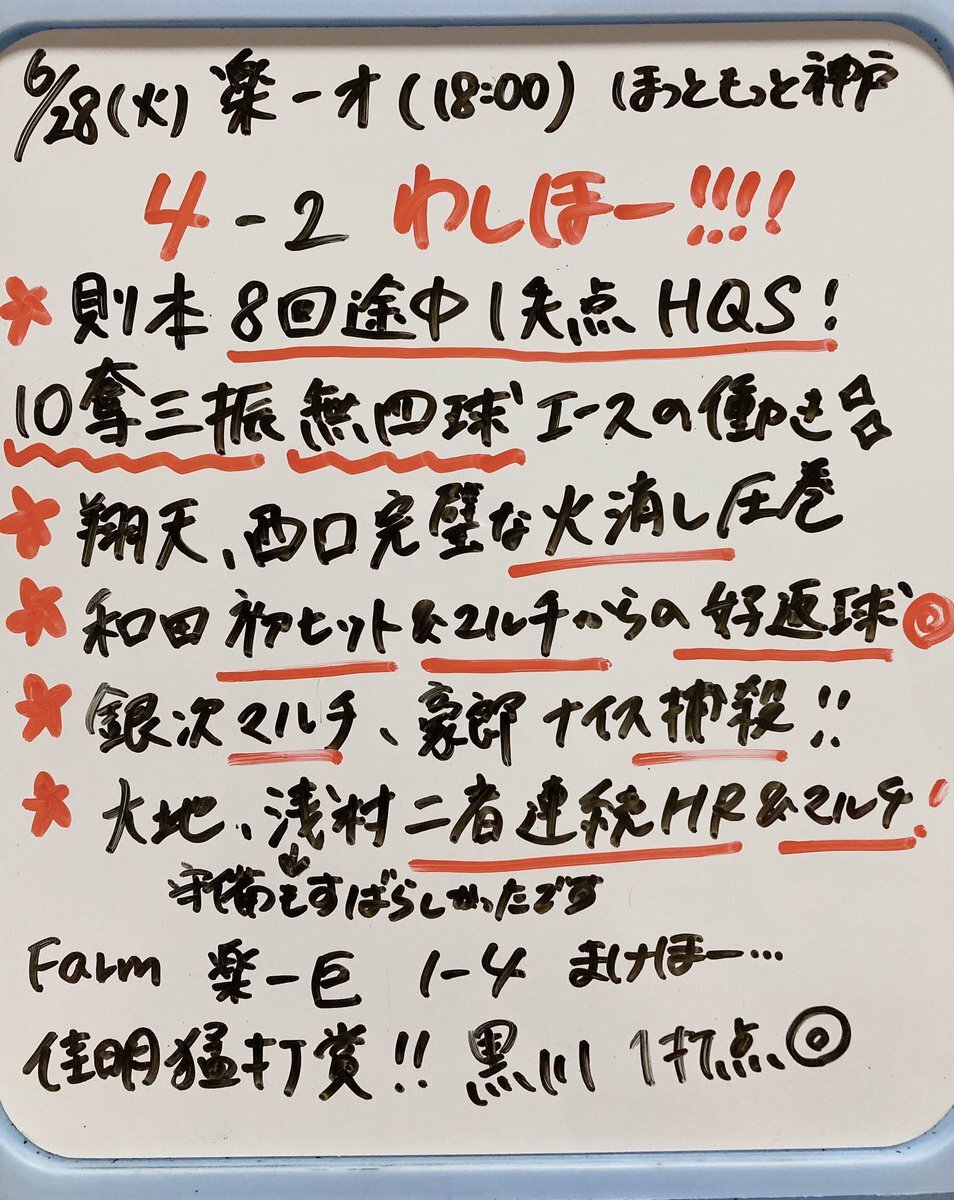 6/28(火) 楽-オ(18:00) ほっともっと神戸
4-2 わしほー!!!!
★則本 8回途中1失点 HQS!
10奪三振 無四球 エースの働き
★翔天、西口完璧な火消し圧巻
★和田 初ヒット&マルチからの好返球◎
★銀次マルチ、豪郎 ナイス捕殺!!
★大地、浅村二者連続HR&マルチ!
↓
守備もすばらしかったです
Farm 楽-巨 1-4 まけほー…
佳明猛打賞!! 黒川 1打点◎